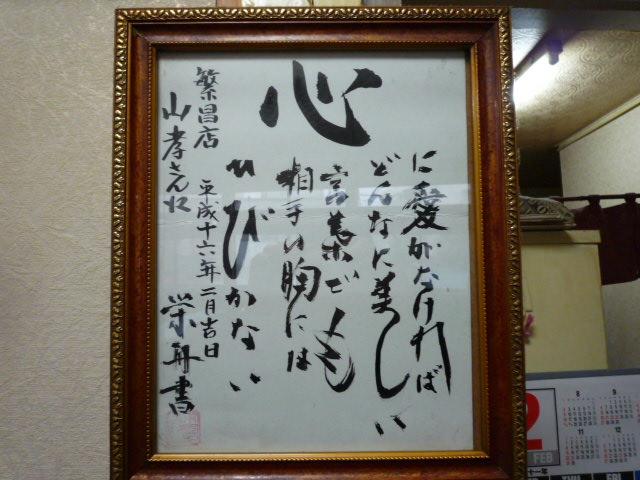 心
に愛がなければ
どんなに美しい
言葉でも
相手の胸には
ひびかない
繁昌店
山孝さん江
平成十六年二月吉日
栄舟書
2
FEB
8
9
11
12